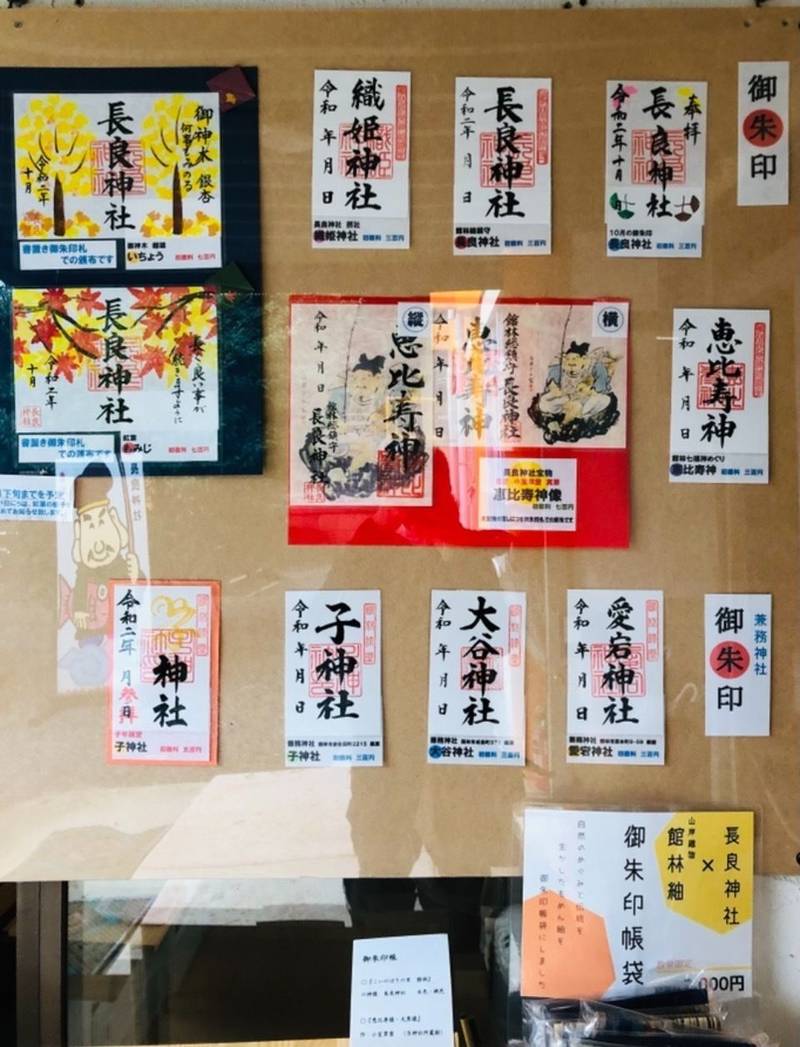 御朱印
奉拝
長良神社
令和二年十月
10月の御朱印
長良神社 初穂料 三百円
長良神社
令和二年 月 日
館林総鎮守
長良神社 初穂料 三百円
織姫神社
令和 年 月 日
長良神社 摂社
織姫神社 初穂料 三百円
御神木 銀杏
長良神社
令和二年
十月
書置き御朱印札
での頒布です
御神木 銀杏
いちょう 初穂料 七百円
長良神社
令和二年
十月
書置き御朱印札
での頒布です
紅葉
もみじ 初穂料 七百円
恵比寿神
令和 年 月 日
館林七福神めぐり
恵比寿神 初穂料 三百円
横
館林総鎮守 長良神社
恵比寿神
令和 年 月 日
縦
恵比寿神
館林総鎮守
長良神社
令和 年 月 日
長良神社宝物
恵比寿神像
初穂料 七百円
兼務神社
御朱印
愛宕神社
令和 年 月 日
兼務神社
愛宕神社 初穂料 三百円
大谷神社
令和 年 月 日
兼務神社
大谷神社 初穂料 三百円
子神社
令和 年 月 日
兼務神社
子神社 初穂料 三百円
神社
令和二年 月 日
子年限定
子神社 初穂料 五百円
長良神社
×
館林紬
御朱印帳袋
自然のめぐみと伝統を
生かしたもめん紬を
御朱印帳袋にしました
数量限定
000円
御朱印帳